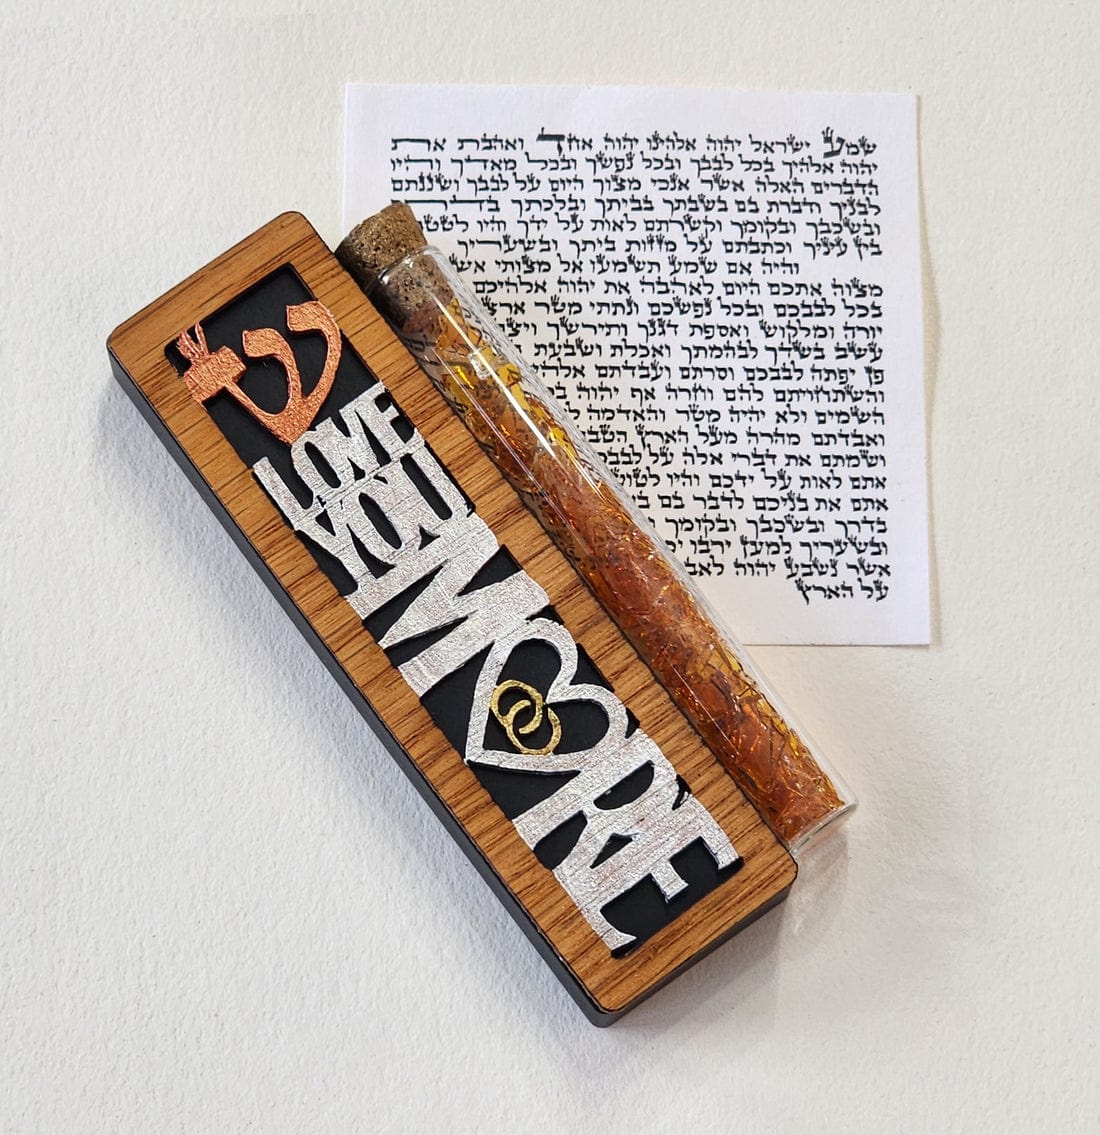 שמע ישראל יהוה אלהינו יהוה אחד ואהבת את
יהוה אלהיך בכל לבבך ובכל נפשך ובכל מאדך והיו
הדברים האלה אשר אנכי מצוך היום על לבבך ושננתם
לבניך ודברת בם בשבתך בביתך ובלכתך בדרך
ובשכבך ובקומך וקשרתם לאות על ידך והיו
בין עיניך וכתבתם על מזזות ביתך ובשעריך
והיה אם שמע תשמעו אל מצותי
מצוה אתכם היום לאהבה את יהוה אלהיכם
בכל לבבכם ובכל נפשכם ונתתי מטר
יורה ומלקוש ואספת דגנך ותירשך
עשב בשדך לבהמתך ואכלת ושבעת
פן יפתה לבבכם וסרתם ועבדתם
והשתחויתם להם וחרה אף יהוה
השמים ולא יהיה מטר והאדמה
ואבדתם מהרה מעל הארץ
ושמתם את דברי אלה על
אתם לאות על ידכם והיו
אתם את בניכם לדבר בם
בדרך ובשכבך ובקומך
ובשעריך למען ירבו
אשר נשבע יהוה
על הארץ
שדי
LOVE
YOU
MORE